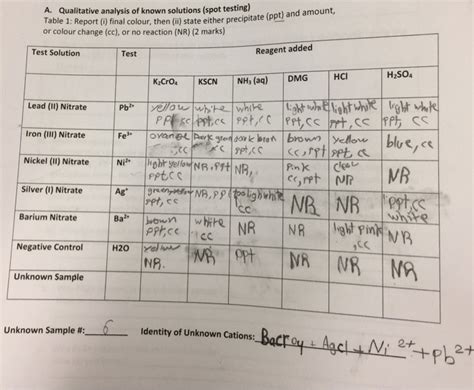 A. Qualitative analysis of known solutions (spot testing)
Table 1: Report (i) final colour, then (ii) state either precipitate (ppt) and amount,
or colour change (cc), or no reaction (NR) (2 marks)
Test Solution Test Reagent added
K₂CrO₄ KSCN NH₃ (aq) DMG HCl H₂SO₄
Lead (II) Nitrate Pb²⁺ yellow white white light white light white light white
ppt, cc ppt, cc ppt, cc ppt, cc ppt, cc ppt, cc
Iron (III) Nitrate Fe³⁺ orange dark brown brown yellow blue, cc
, cc , cc ppt, cc cc, ppt ppt, cc
Nickel (II) Nitrate Ni²⁺ light yellow NR, ppt NR, Pink clear NR
ppt, cc cc, ppt NR
Silver (I) Nitrate Ag⁺ NR, light white NR NR ppt, cc
ppt, cc cc white
Barium Nitrate Ba²⁺ brown white NR NR light pink NR
ppt, cc cc , cc
Negative Control H2O yellow NR ppt NR NR NR
NR.
Unknown Sample
Unknown Sample #: 6 Identity of Unknown Cations: + AgCl + Ni²⁺ + Pb²⁺